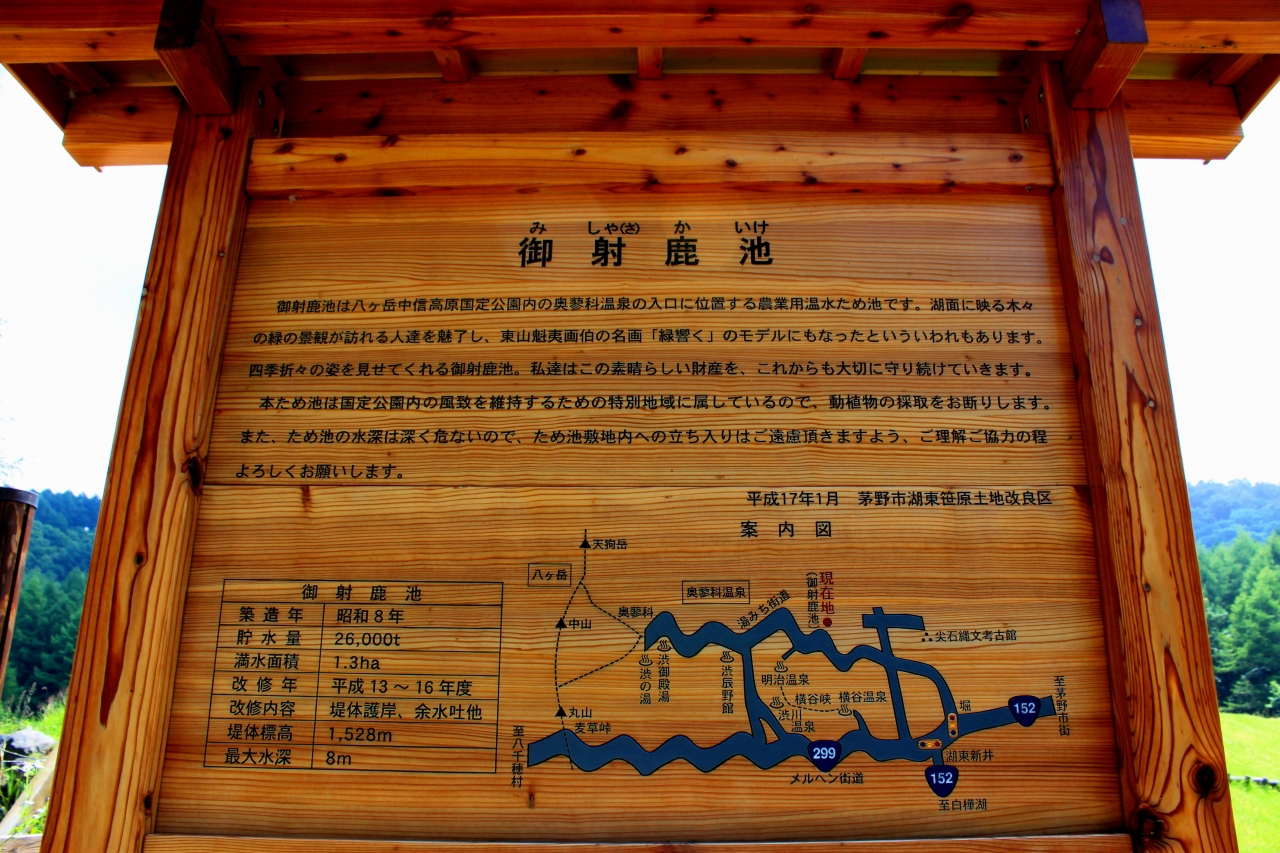 み しゃ(さ) か いけ
御射鹿池
御射鹿池は八ヶ岳中信高原国定公園内の奥蓼科温泉の入口に位置する農業用温水ため池です。湖面に映る木々
の緑の景観が訪れる人達を魅了し、東山魁夷画伯の名画「緑響く」のモデルにもなったといういわれもあります。
四季折々の姿を見せてくれる御射鹿池。私達はこの素晴らしい財産を、これからも大切に守り続けていきます。
本ため池は国定公園内の風致を維持するための特別地域に属しているので、動植物の採取をお断りします。
また、ため池の水深は深く危ないので、ため池敷地内への立ち入りはご遠慮頂きますよう、ご理解ご協力の程
よろしくお願いします。
平成17年1月 茅野市湖東笹原土地改良区
案内図
御射鹿池
築造年 昭和8年
貯水量 26,000t
満水面積 1.3ha
改修年 平成13～16年度
改修内容 堤体護岸、余水吐他
堤体標高 1,528m
最大水深 8m
天狗岳
八ヶ岳
中山
丸山
麦草峠
至八千穂村
奥蓼科
奥蓼科温泉
湯みち街道
現在地
(御射鹿池)
尖石縄文考古館
渋の湯
渋御殿湯
渋辰野館
明治温泉
横谷峡
横谷温泉
渋川
温泉
堀
152
至茅野市街
299
メルヘン街道
湖東新井
152
至白樺湖